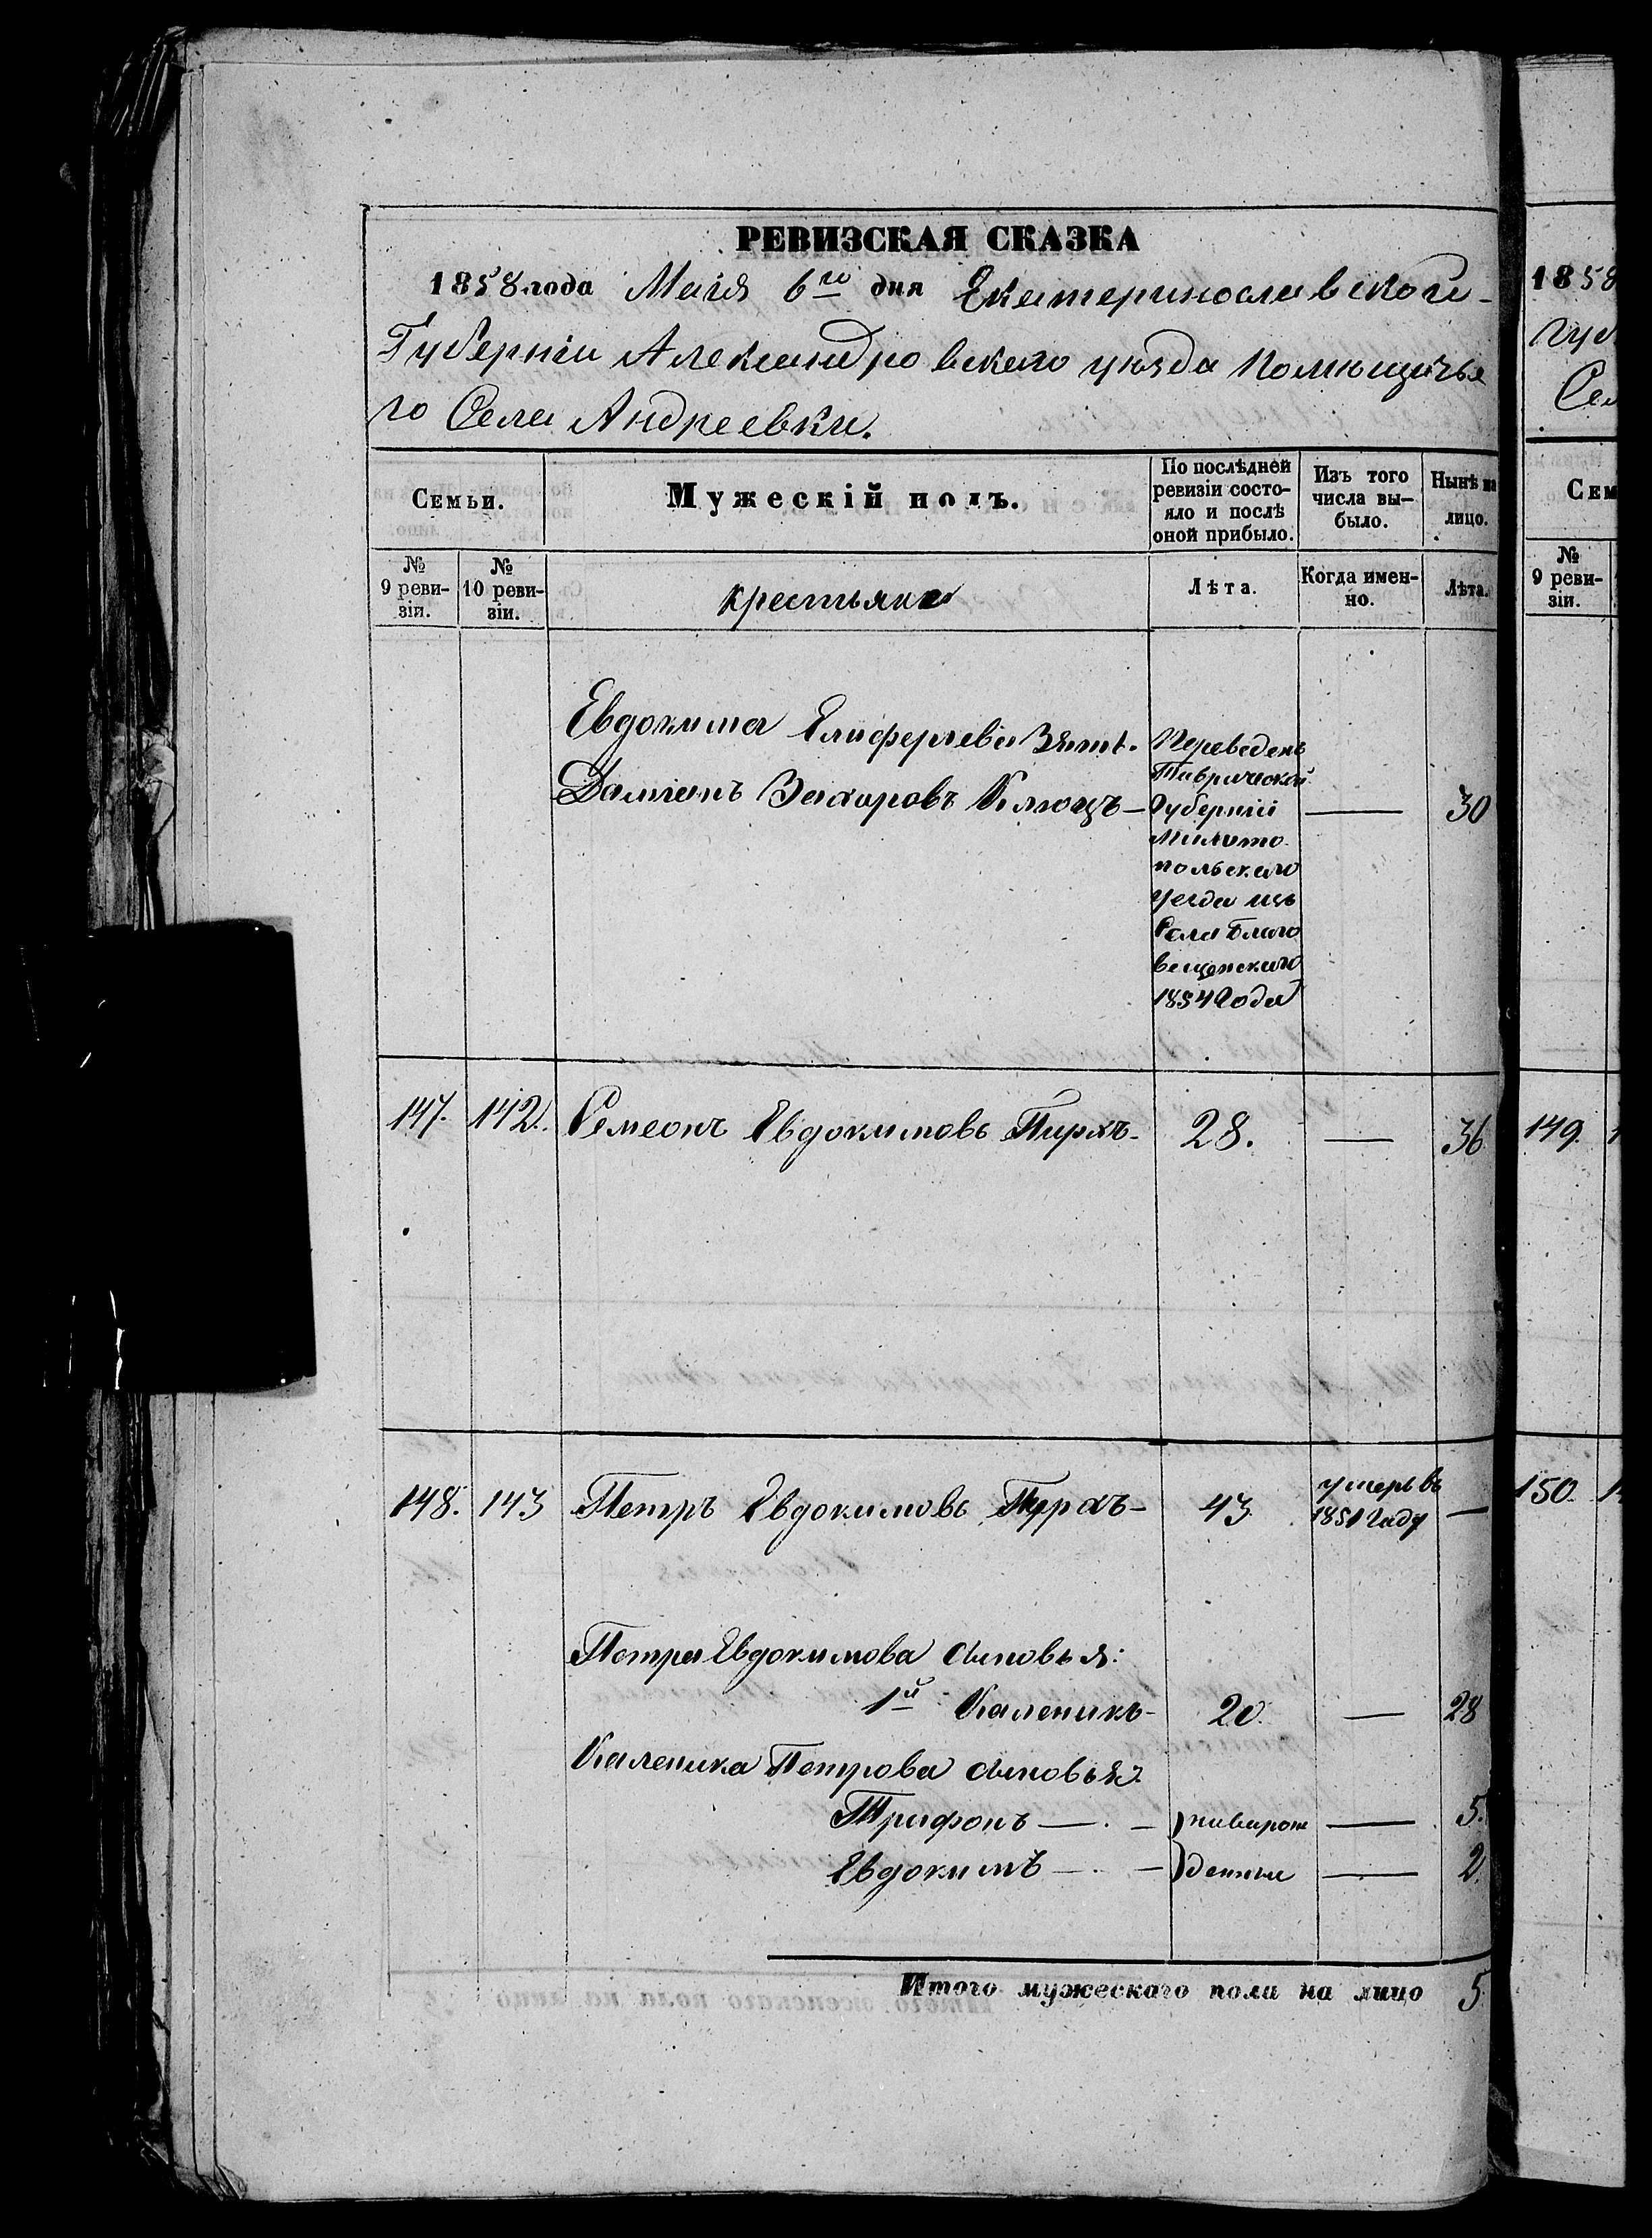 РЕВИЗСКАЯ СКАЗКА
1858 года Маія 6го дня Екатеринославской
Губерніи Александровскаго уѣзда Помѣщичья
го Села Андреевки.
Семьи.
Мужескій полъ.
По послѣдней ревизіи состояло и послѣ оной прибыло.
Изъ того числа выбыло.
Нынѣ на лицо.
№ 9 ревизіи.
№ 10 ревизіи.
крестьяне
Лѣта.
Когда именно.
Лѣта.
Евдокима Елиферіева Зять
Даміанъ Захаровъ Клюцъ — 30
Переведенъ
Таврической
Губерніи
Мелито
польскаго
Уезда изъ
Села Благо
вещенскаго
1854 Года
147. 142. Семеонъ Евдокимовъ Пирхъ 28. — 36
148. 143 Петръ Евдокимовъ Пурхъ 43 умеръ въ 1851 Году —
Петра Евдокимова Сыновья:
1й Каленикъ 20. — 28
Каленика Петрова Сыновья:
Трифонъ — новорож — 5.
Евдокимъ — денные — 2.
Итого мужескаго пола на лицо 5
1858
Губ
Сел
Сем
№ 9 ревизіи.
149.
150.